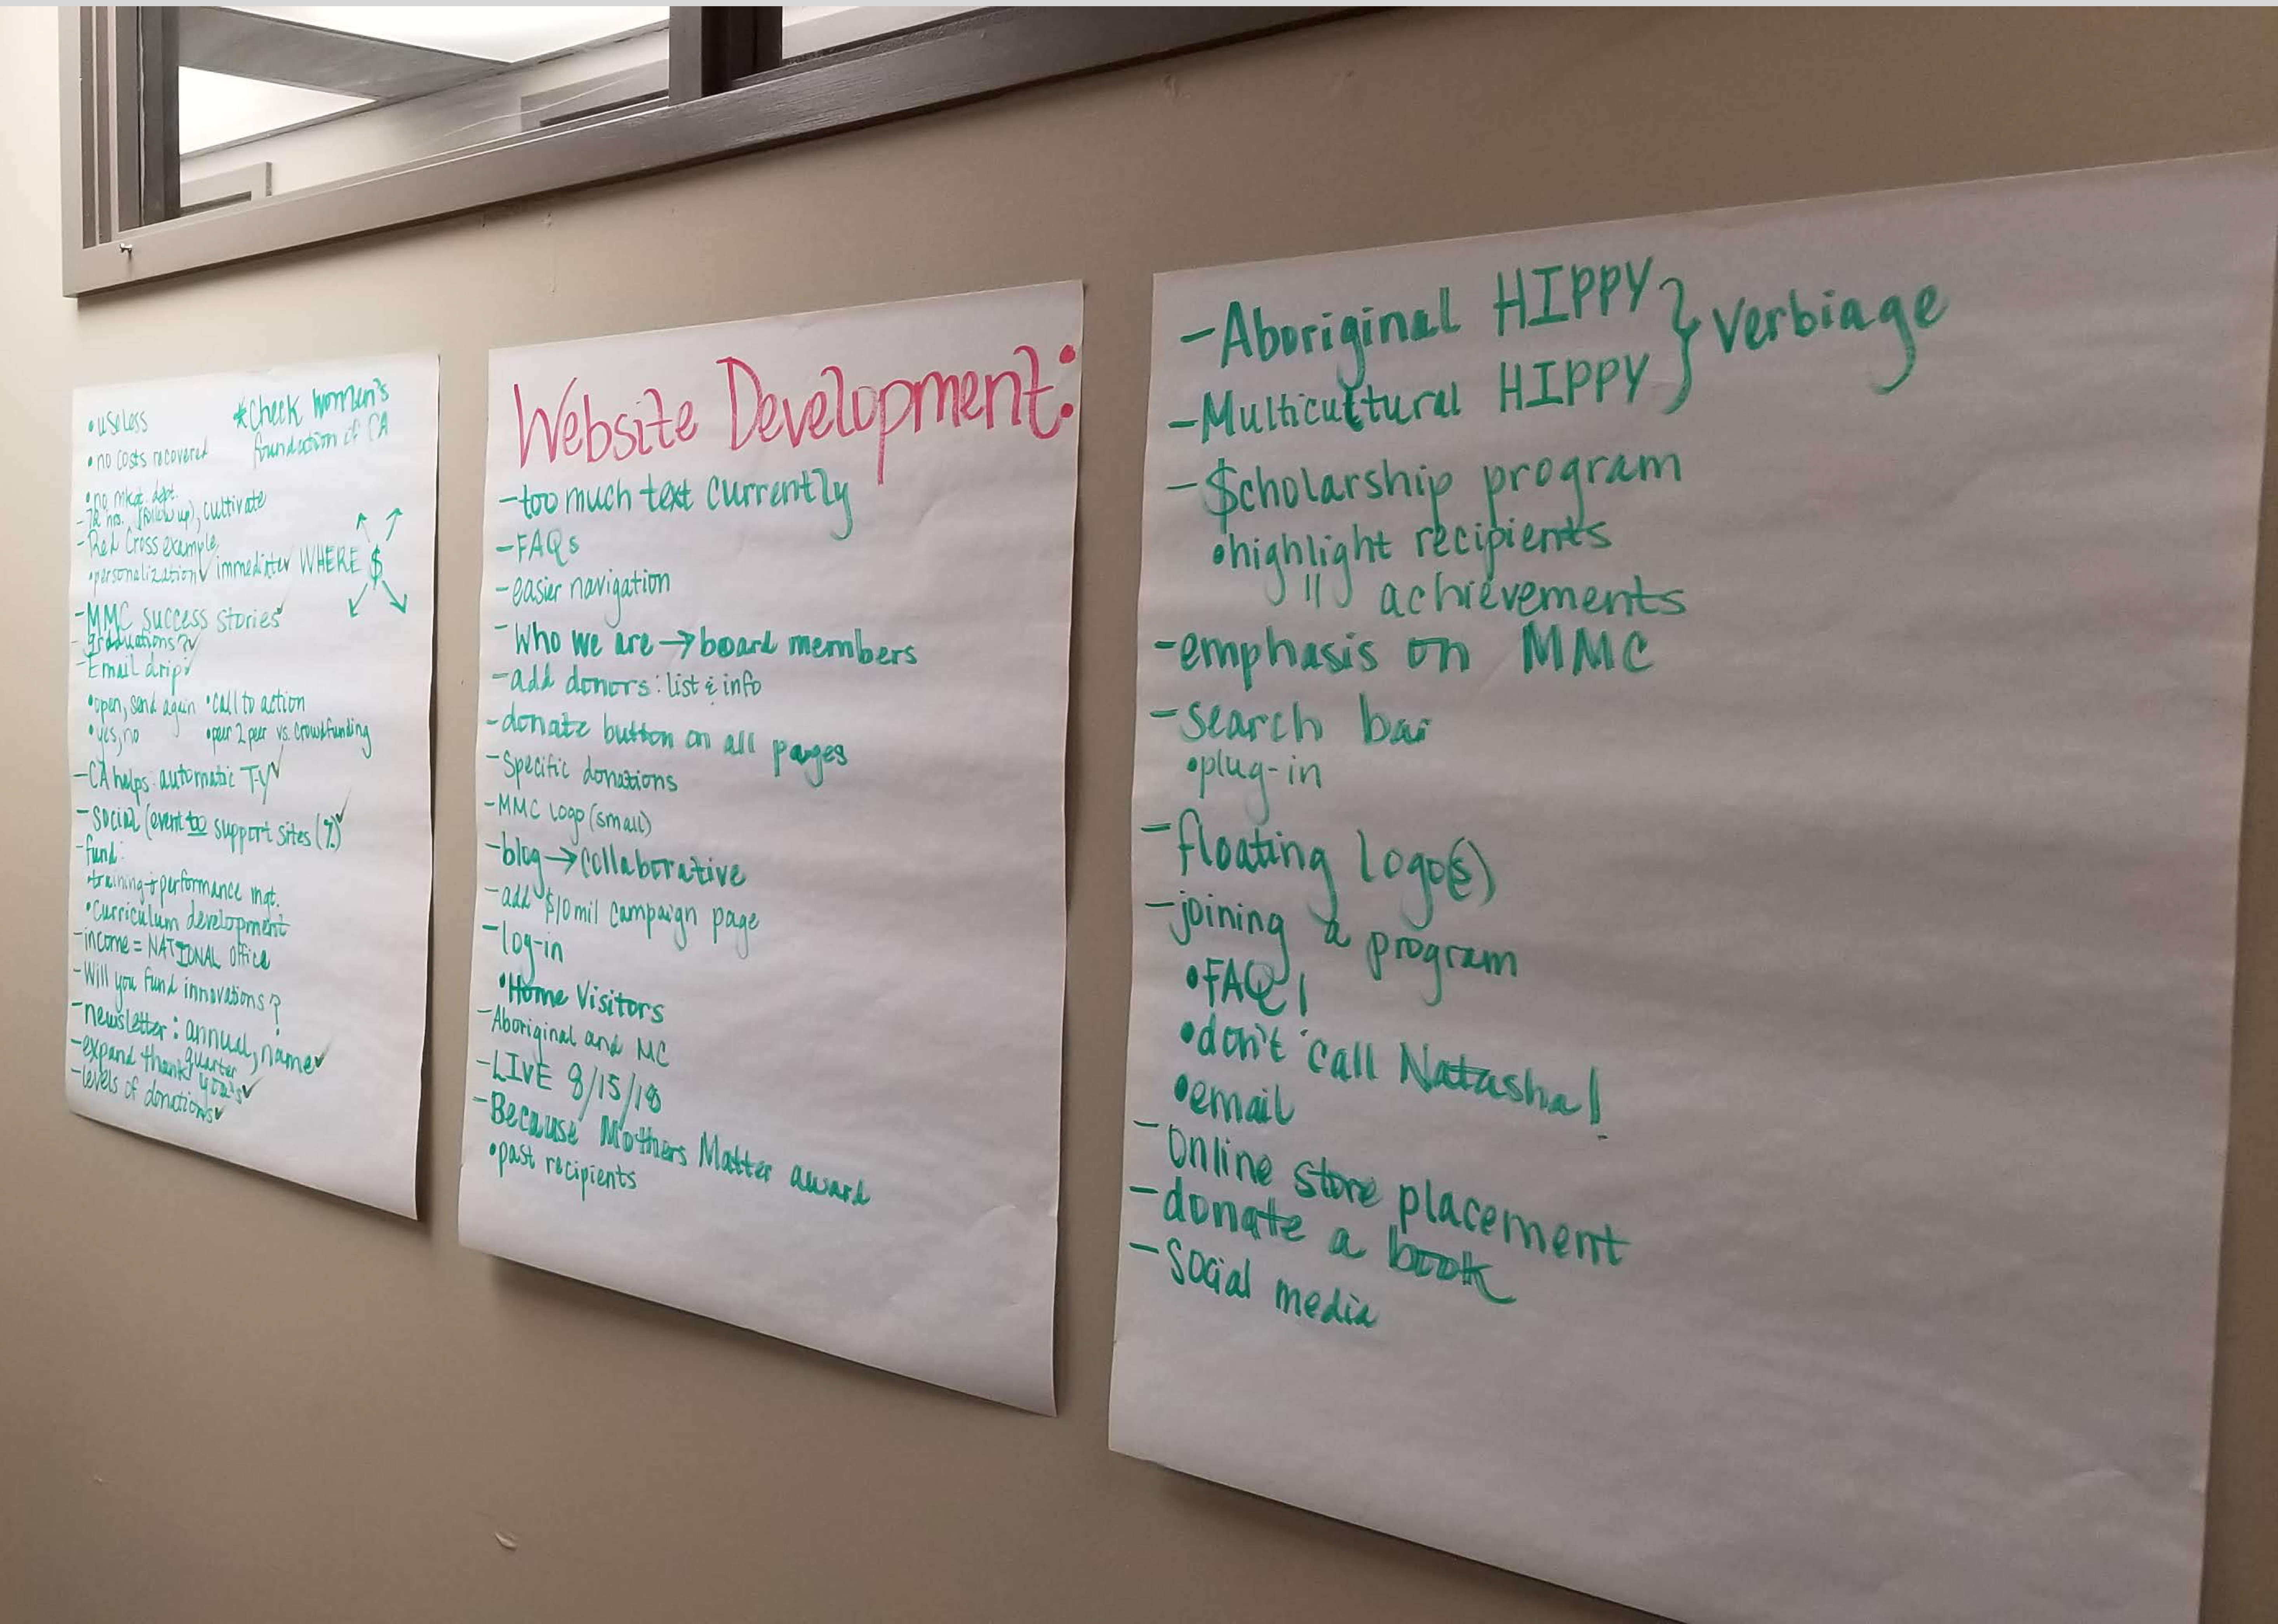 • useless
*Check Women's
foundation of CA
• no costs recovered
• no mkgt. dept.
- 72 hrs. (follow up), cultivate
- Red Cross example
• personalization✓ immediate WHERE $
- MMC success stories✓
- graduations?✓
- Email drip✓
• open, send again • call to action
• yes, no • peer 2 peer vs. crowdfunding
- CA helps: automatic T-Y✓
- Social (event too support sites (%)✓
- fund:
• training + performance mgt.
• Curriculum development
- income = NATIONAL office
- Will you fund innovations?
- newsletter: annual, name✓
quarter
- expand thank you's✓
- levels of donations✓
Website Development:
- too much text currently
- FAQs
- easier navigation
- Who we are → board members
- add donors: list & info
- donate button on all pages
- Specific donations
- MMC logo (small)
- blog → collaborative
- add $10 mil campaign page
- log-in
• Home Visitors
- Aboriginal and MC
- LIVE 8/15/18
- Because Mothers Matter award
• past recipients
- Aboriginal HIPPY } verbiage
- Multicultural HIPPY
- $cholarship program
• highlight recipients
" achievements
- emphasis on MMC
- search bar
• plug-in
- floating logo(s)
- joining a program
• FAQ!
• don't call Natasha!
• email
- Online store placement
- donate a book
- Social media